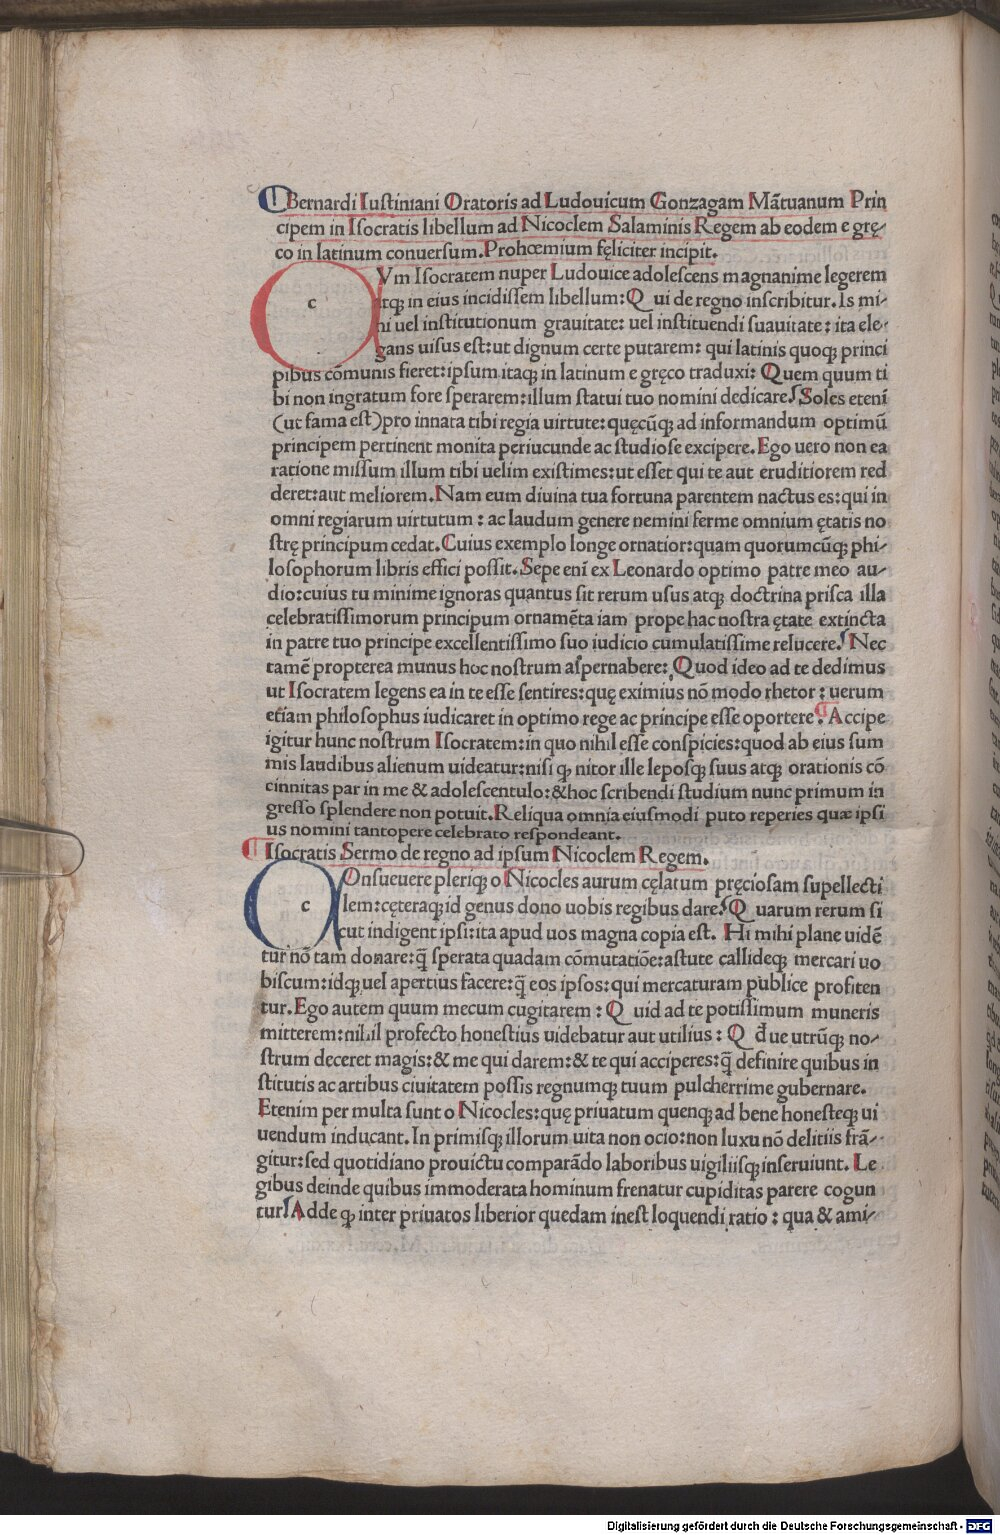 Bernardi Iustiniani Oratoris ad Ludouicum Gonzagam Mātuanum Prin
cipem in Isocratis libellum ad Nicoclem Salaminis Regem ab eodem e grę-
co in latinum conuersum. Prohœmium fęliciter incipit.
c Vm Isocratem nuper Ludouice adolescens magnanime legerem
atq; in eius incidissem libellum: Qui de regno inscribitur. Is mi-
hi uel institutionum grauitate: uel instituendi suauitate: ita ele-
gans uisus est: ut dignum certe putarem: qui latinis quoq; princi
pibus cōmunis fieret: ipsum itaq; in latinum e gręco traduxi: Quem quum ti
bi non ingratum fore sperarem: illum statui tuo nomini dedicare. Soles etenī
(ut fama est) pro innata tibi regia uirtute: quęcūq; ad informandum optimū
principem pertinent monita periucunde ac studiose excipere. Ego uero non ea
ratione missum illum tibi uelim existimes: ut esset qui te aut eruditiorem red
deret: aut meliorem. Nam eum diuina tua fortuna parentem nactus es: qui in
omni regiarum uirtutum: ac laudum genere nemini ferme omnium ętatis no
strę principum cedat. Cuius exemplo longe ornatior: quam quorumcūq; phi-
losophorum libris effici possit. Sepe enī ex Leonardo optimo patre meo au-
dio: cuius tu minime ignoras quantus sit rerum usus atq; doctrina prisca illa
celebratissimorum principum ornamēta iam prope hac nostra ętate extincta
in patre tuo principe excellentissimo suo iudicio cumulatissime relucere. Nec
tamē propterea munus hoc nostrum aspernabere: Quod ideo ad te dedimus
ut Isocratem legens ea in te esse sentires: quę eximius nō modo rhetor: uerum
etiam philosophus iudicaret in optimo rege ac principe esse oportere. Accipe
igitur hunc nostrum Isocratem: in quo nihil esse conspicies: quod ab eius sum
mis laudibus alienum uideatur: nisi q; nitor ille leposq; suus atq; orationis cō
cinnitas par in me & adolescentulo: & hoc scribendi studium nunc primum in
gresso splendere non potuit. Reliqua omnia eiusmodi puto reperies quæ ipsi
us nomini tantopere celebrato respondeant.
Isocratis Sermo de regno ad ipsum Nicoclem Regem.
c Onsueuere pleriq; o Nicocles aurum cęlatum pręciosam supellecti
lem: cęteraq; id genus dono uobis regibus dare. Quarum rerum si
cut indigent ipsi: ita apud uos magna copia est. Hi mihi plane uidē
tur nō tam donare: q̄ sperata quadam cōmutatiōe: astute callideq; mercari uo
biscum: idq; uel apertius facere: q̄ eos ipsos: qui mercaturam publice profiten
tur. Ego autem quum mecum cugitarem: Quid ad te potissimum muneris
mitterem: nihil profecto honestius uidebatur aut utilius: Q d̄ue utrūq; no-
strum deceret magis: & me qui darem: & te qui acciperes: q̄ definire quibus in
stitutis ac artibus ciuitatem possis regnumq; tuum pulcherrime gubernare.
Etenim per multa sunt o Nicocles: quę priuatum quenq; ad bene honesteq; ui
uendum inducant. In primisq; illorum uita non ocio: non luxu nō delitiis frā-
gitur: sed quotidiano prouictu comparādo laboribus uigiliisq; inseruiunt. Le
gibus deinde quibus immoderata hominum frenatur cupiditas parere cogun
tur. Adde q; inter priuatos liberior quedam inest loquendi ratio: qua & ami-
Digitalisierung gefördert durch die Deutsche Forschungsgemeinschaft - DFG